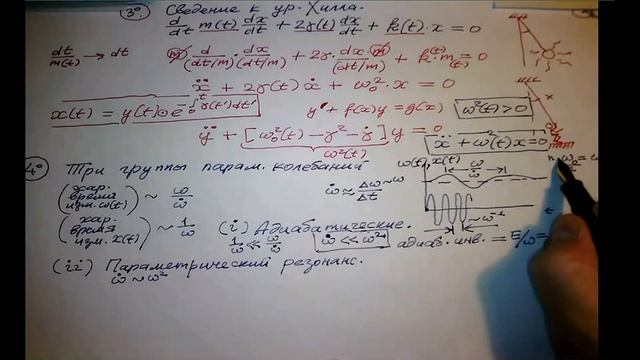 3°. Сведение к ур. Хилла.
d/dt m(t) dx/dt + 2γ(t) dx/dt + k(t)·x = 0
dt/m(t) → dt
m d/(dt/m) · dx/(dt/m) + 2γ · dx m/(dt/m) + k(t) m(t) = 0
ẍ + 2γ(t) ẋ + ω₀²·x = 0
y' + f(x)y = g(x)
ω²(t) > 0
ÿ + [ω₀²(t) − γ² − γ̇] y = 0
ω²(t)
ẍ + ω²(t)x = 0
4° Три группы парам. колебаний
(хар. время изм. ω(t)) ~ ω/ω̇
ω̇ ≈ Δω/Δt
ω(t), x(t)
ω/ω̇
~ω⁻¹
t
(хар. время изм. x(t)) ~ 1/ω
(i) Адиабатические.
1/ω ≪ ω/ω̇
ω̇ ≪ ω²
адиаб. инв. = E/ω =
(ii) Параметрический резонанс.
ω̇ ~ ω²